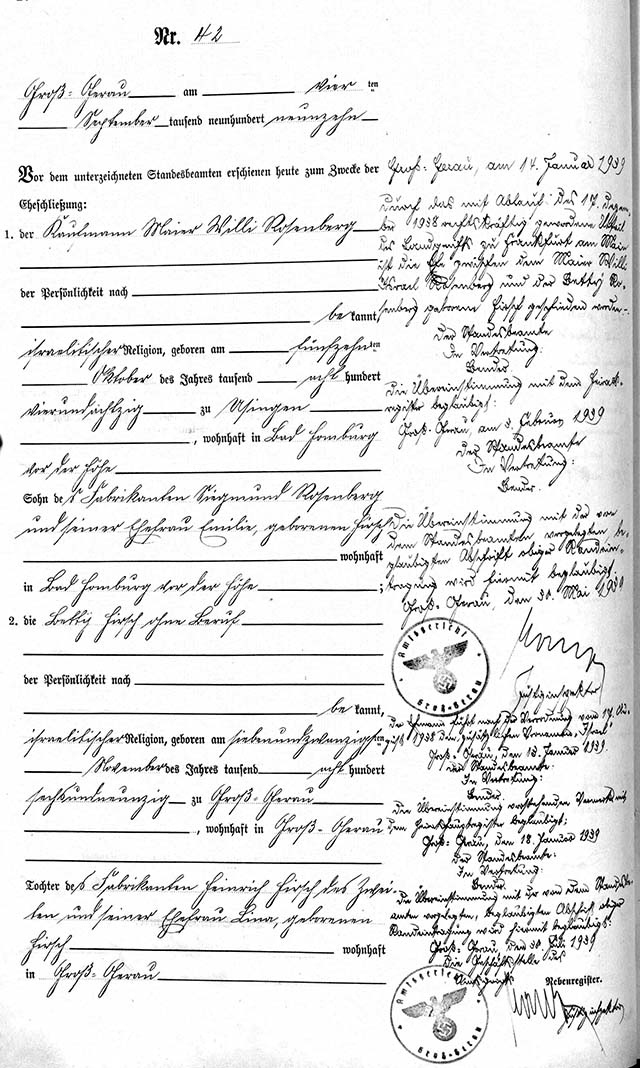 Nr. 42
Groß-Gerau am vierten
September tausend neunhundert neunzehn
Vor dem unterzeichneten Standesbeamten erschienen heute zum Zwecke der
Eheschließung:
1. der Kaufmann Maier Willi Rosenberg
der Persönlichkeit nach
be kannt,
israelitischer Religion, geboren am fünfzehnten
Oktober des Jahres tausend acht hundert
vierundachtzig zu Usingen
, wohnhaft in Bad Homburg
vor der Höhe
Sohn des Fabrikanten Siegmund Rosenberg
und seiner Ehefrau Emilie, geborenen Hirsch
wohnhaft
in Bad Homburg vor der Höhe ;
2. die Betty Hirsch ohne Beruf
der Persönlichkeit nach
be kannt,
israelitischer Religion, geboren am siebenundzwanzigsten
November des Jahres tausend acht hundert
sechsundneunzig zu Groß-Gerau
, wohnhaft in Groß-Gerau
Tochter des Fabrikanten Heinrich Hirsch des Zwei-
ten und seiner Ehefrau Lina, geborenen
Hirsch wohnhaft
in Groß-Gerau
Groß-Gerau, am 14. Januar 1939
Durch das mit Ablauf des 17. Dezem-
ber 1938 rechtskräftig gewordene Urteil
des Landgerichts zu Frankfurt am Main
ist die Ehe zwischen dem Maier Willi
Israel Rosenberg und der Betty Ro-
senberg geborene Hirsch geschieden worden.
Der Standesbeamte
In Vertretung:
Bender
Die Übereinstimmung mit dem Heirats-
register beglaubigt:
Groß-Gerau, am 3. Februar 1939
Der Standesbeamte
In Vertretung:
Bender.
Die Übereinstimmung mit der von
dem Standesbeamten vorgelegten be-
glaubigten Abschrift obiger Randein-
tragung wird hiermit beglaubigt:
Groß-Gerau, den 30. Mai 1939
Justizinspektor
Amtsgericht
Groß-Gerau
Der Ehemann führt nach der Verordnung vom 17. Au-
gust 1938 den zusätzlichen Vornamen "Israel"
Groß-Gerau, den 18. Januar 1939.
Der Standesbeamte.
In Vertretung:
Bender.
Die Übereinstimmung vorstehenden Vermerks mit
dem Heiratshauptregister beglaubigt:
Groß-Gerau, den 18. Januar 1939
Der Standesbeamte.
In Vertretung:
Bender
Die Übereinstimmung mit der von dem Standesbe-
amten vorgelegten, beglaubigten Abschrift obiger
Randeintragung wird hiermit beglaubigt:
Groß-Gerau, den 30. Juli 1939
Die Geschäftsstelle des
Amtsgerichts
Nebenregister.
Justizinspektor
Amtsgericht
Groß-Gerau